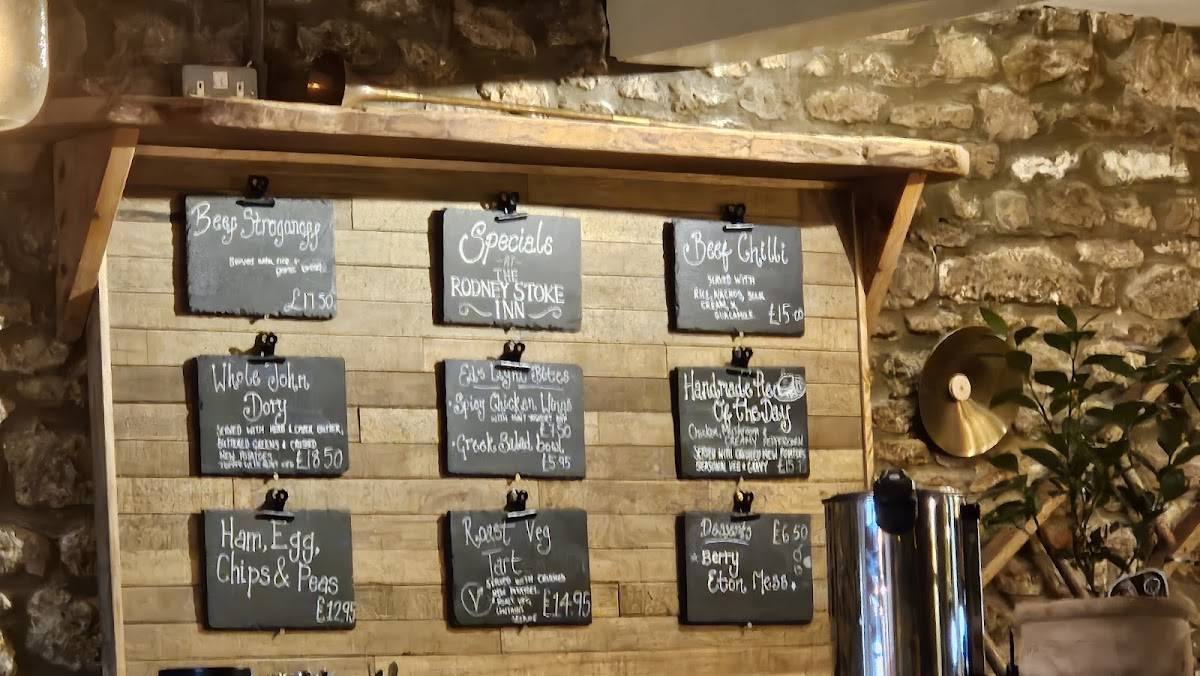 Beef Stroganoff
Served with rice &
£17.50
Specials
AT
THE
RODNEY STOKE
INN
Beef Chilli
SERVED WITH
RICE, NACHOS, SOUR
CREAM, &
£15.00
Whole John
Dory
SERVED WITH HERB & BUTTER,
BUTTERED GREENS & CRUSHED
NEW POTATOES
£18.50
Ed's Light Bites
Spicy Chicken Wings
£7.50
Greek Salad bowl
£5.95
Handmade
Of the Day
Chicken, Mushroom &
SERVED WITH CRUSHED NEW POTATOES
SEASONAL VEG & GRAVY
Ham, Egg,
Chips & Peas
£12.95
Roast Veg
Tart
SERVED WITH CRUSHED
NEW POTATOES
V
£14.95
Desserts £6.50
Berry
Eton Mess.